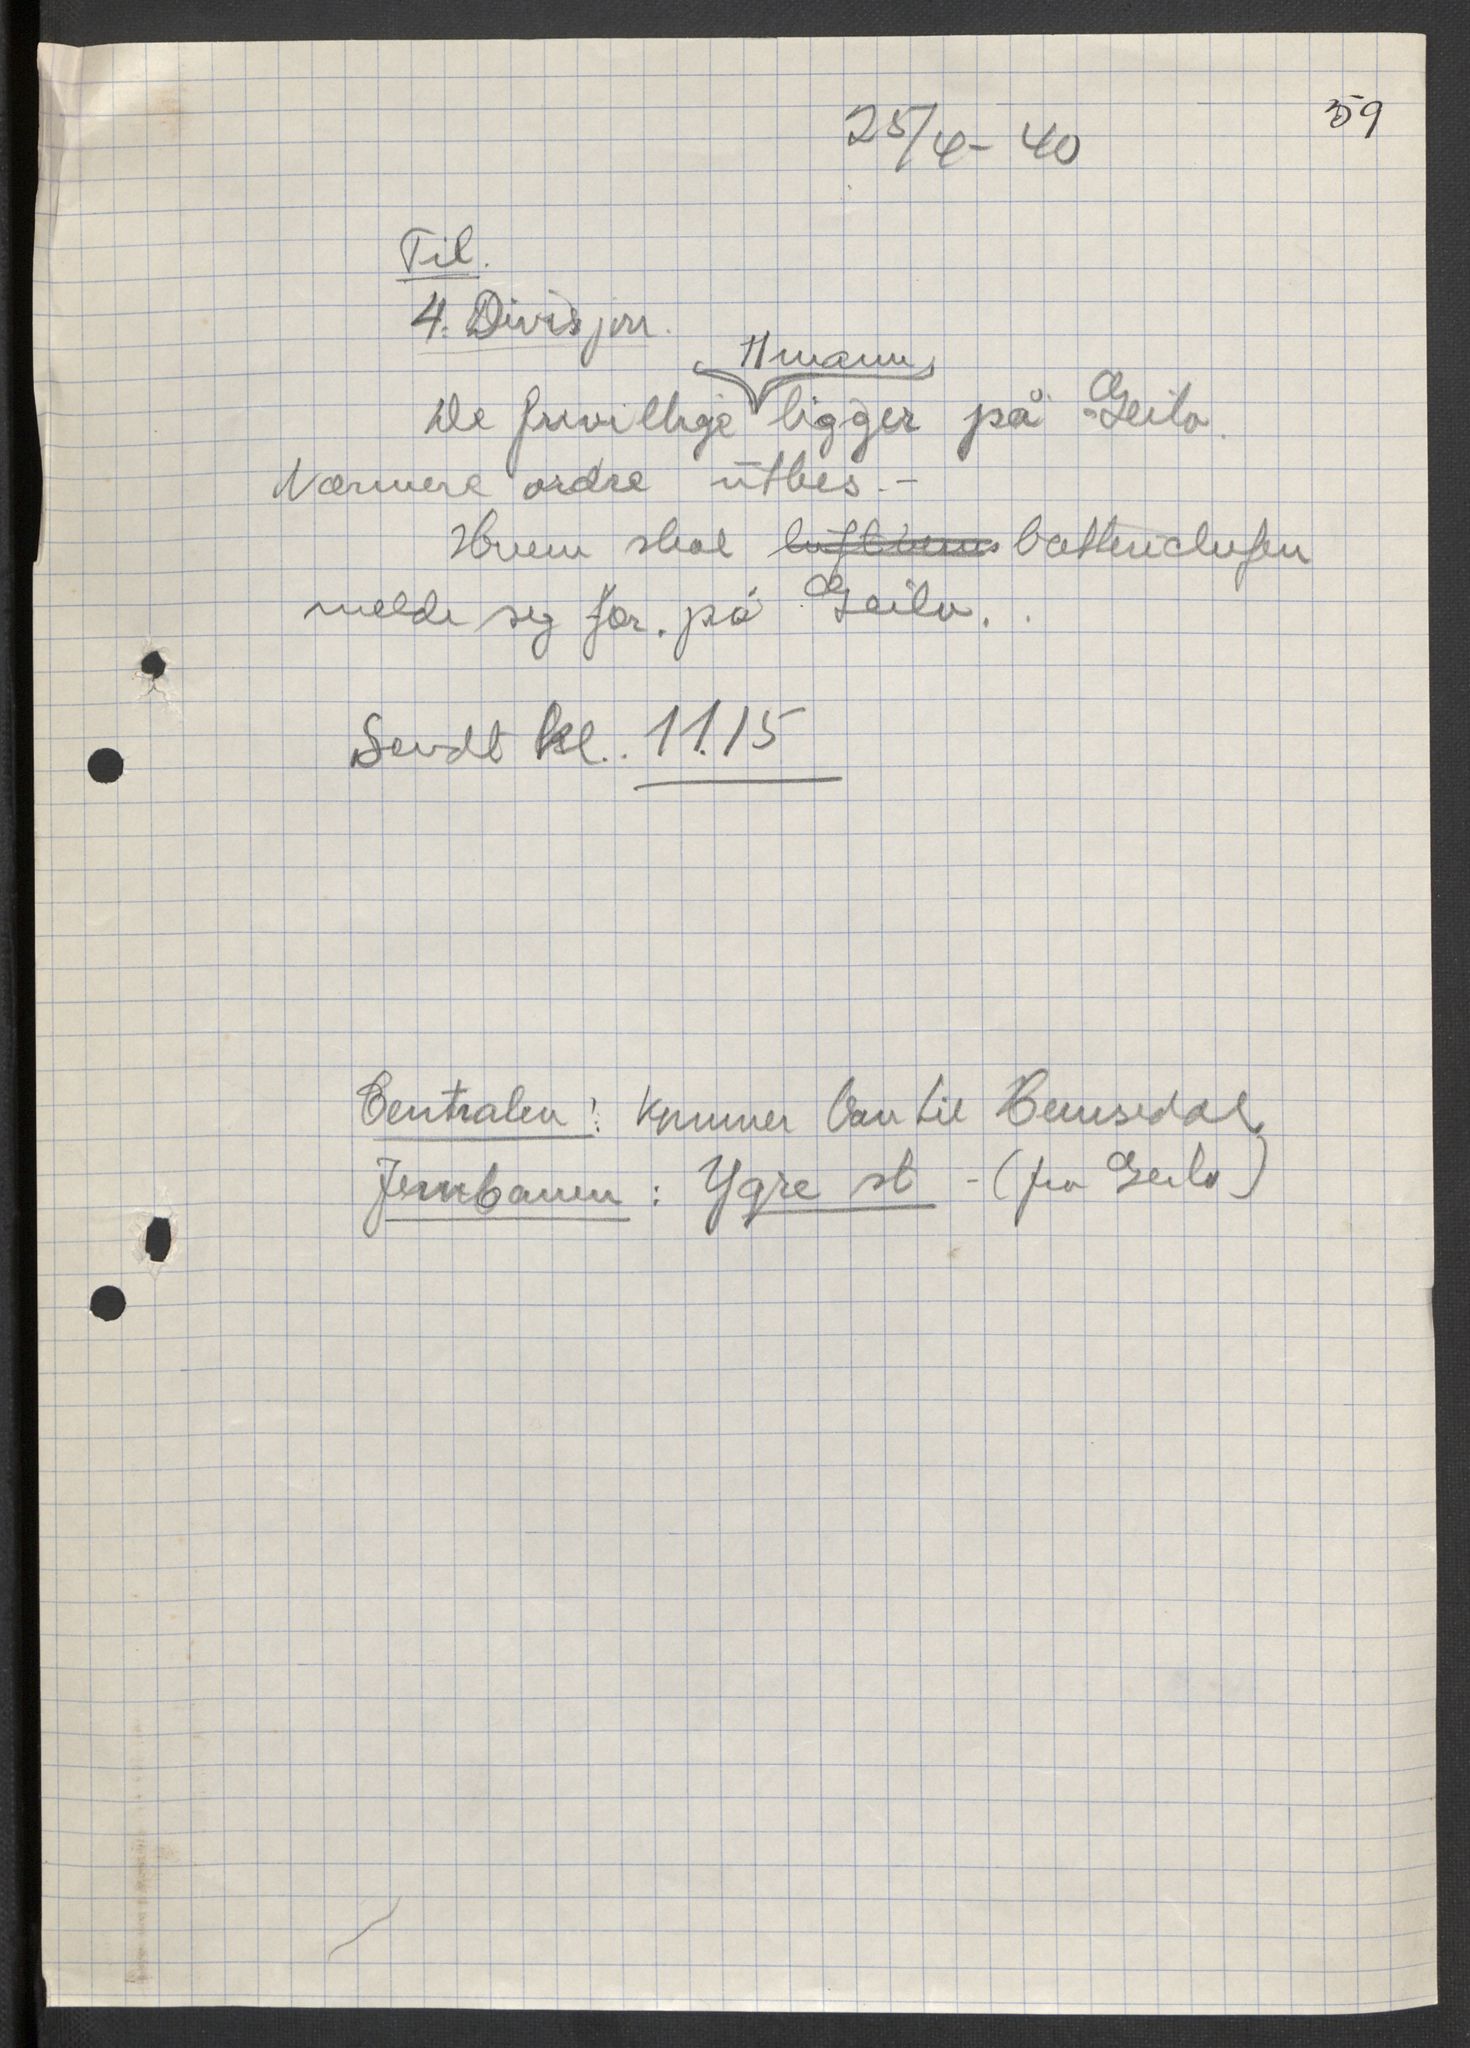 59
25/4 - 40
Til.
4. Divisjon.
11 mann
De frivillige ligger på Geilo.
Nærmere ordre utbes. -
Hvem skal luftverns batterichefen
melde seg for. på Geilo.
Sendt kl. 11.15
Centralen: kommer van til Hemsedal,
Jernbanen: Ygre st - (fra Geilo)